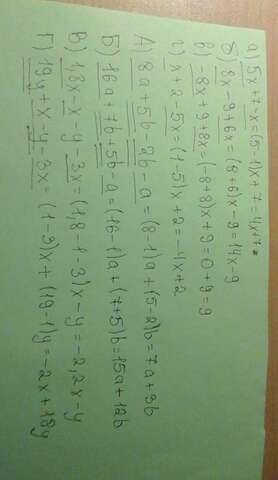 а) 5x+7-x=(5-1)x+7=4x+7
б) 8x-9+6x=(8+6)x-9=14x-9
в) -8x+9+8x=(-8+8)x+9=0+9=9
г) x+2-5x=(1-5)x+2=-4x+2
А) 8a+5b-2b-a=(8-1)a+(5-2)b=7a+3b
Б) 16a+7b+5b-a=(16-1)a+(7+5)b=15a+12b
В) 1,8x-x-y-3x=(1,8-1-3)x-y=-2,2x-y
Г) 19y+x-y-3x=(1-3)x+(19-1)y=-2x+18y